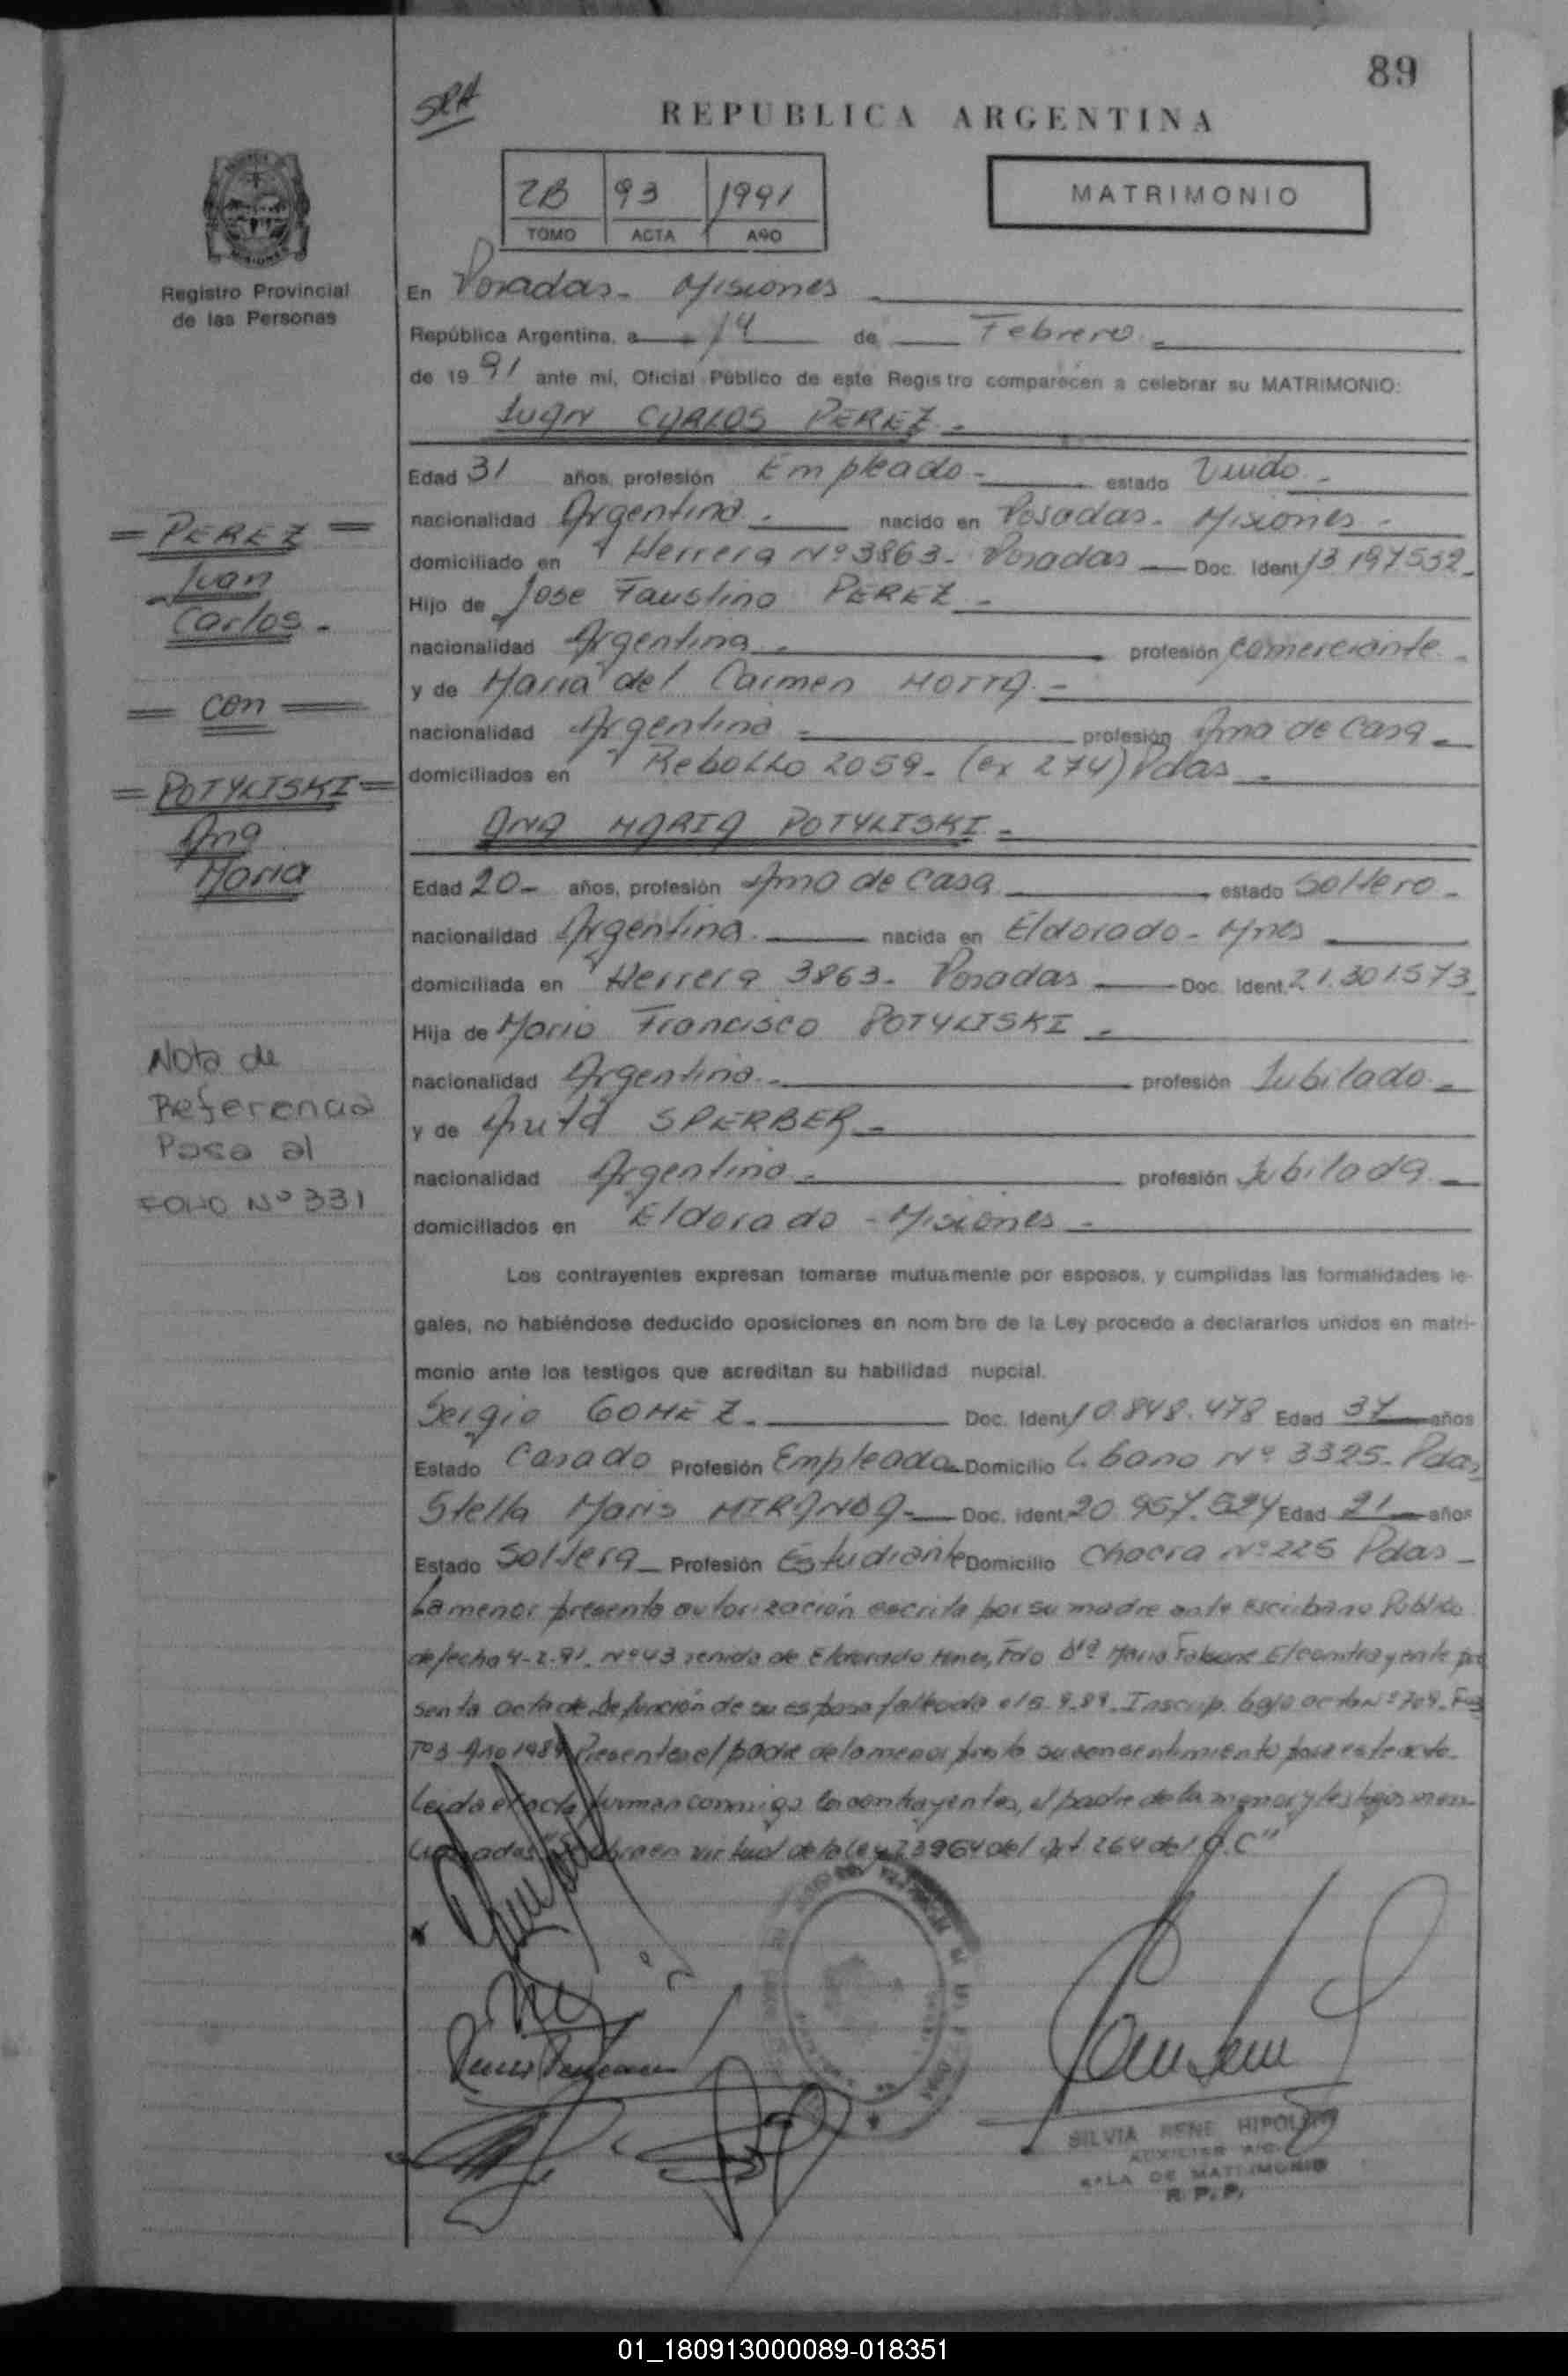 89
SRA
REPUBLICA ARGENTINA
2B 93 1991
TOMO ACTA AÑO
MATRIMONIO
Registro Provincial
de las Personas
En Posadas - Misiones
República Argentina, a 14 de Febrero
de 19 91 ante mí, Oficial Público de este Registro comparecen a celebrar su MATRIMONIO:
JUAN CARLOS PEREZ -
Edad 31 años, profesión Empleado - estado Viudo -
nacionalidad Argentina - nacido en Posadas - Misiones -
domiciliado en Herrera Nº 3863 - Posadas - Doc. Ident. 13.197532 -
Hijo de Jose Faustino PEREZ -
nacionalidad Argentina - profesión comerciante -
y de Maria del Carmen MOTTA -
nacionalidad Argentina - profesión Ama de Casa -
domiciliados en Rebollo 2059 - (ex 274) Pdas -
ANA MARIA POTYLISKI -
Edad 20 - años, profesión Ama de Casa estado Soltero -
nacionalidad Argentina - nacida en Eldorado - Mnes
domiciliada en Herrera 3863 - Posadas - Doc. Ident. 21.301573
Hija de Mario Francisco POTYLISKI -
nacionalidad Argentina - profesión Jubilado -
y de Anita SPERBER -
nacionalidad Argentina - profesión Jubilada -
domiciliados en Eldorado - Misiones -
Los contrayentes expresan tomarse mutuamente por esposos, y cumplidas las formalidades le-
gales, no habiéndose deducido oposiciones en nom bre de la Ley procedo a declararlos unidos en matri-
monio ante los testigos que acreditan su habilidad nupcial.
Sergio GOMEZ - Doc. Ident. 10.848.478 Edad 37 años
Estado Casado Profesión Empleado - Domicilio Libano Nº 3325 - Pdas
Stella Maris MIRANDA - Doc. Ident. 20.957.524 Edad 21 años
Estado Soltera - Profesión Estudiante Domicilio Chacra Nº 225 Pdas -
La menor presenta autorización escrita por su madre ante Escribano Público
de fecha 4-2-91 - Nº 43 venida de Eldorado Mnes, Fdo Maria El contrayente pre
senta acta de defunción de su esposa fallecida el 5.9.89 - Inscrip. bajo acta Nº 709 -
Tº 3 Año 1989 Presente el padre de la menor presta su consentimiento para este acto -
Leida el acta firman conmigo los contrayentes, el padre de la menor y testigos men-
cionados en virtud de la Ley 23964 del Art 264 del C.C"
SILVIA RENE HIPOLITO
AUXILIAR
SALA DE MATRIMONIO
R. P. P.
= PEREZ =
Juan
Carlos -
= con =
= POTYLISKI =
Ana
Maria
Nota de
Referencia
Pasa al
FOLIO Nº 331
01_180913000089-018351